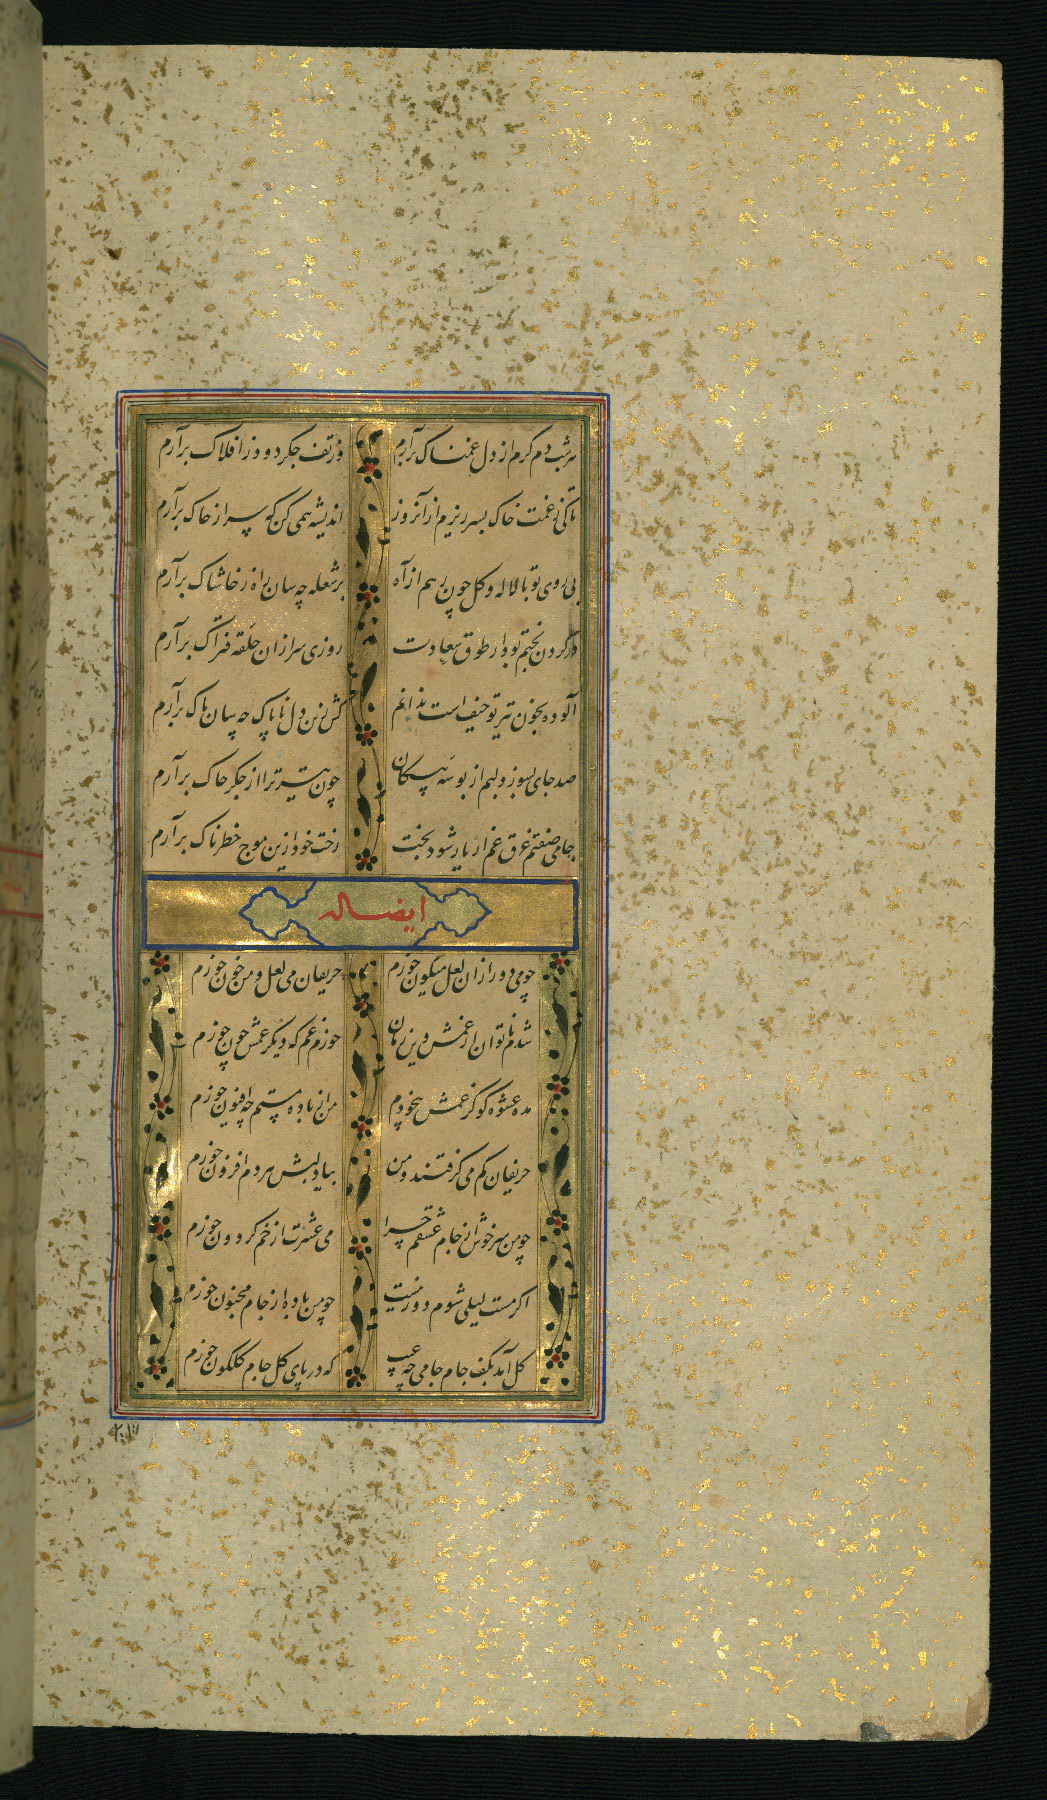 هر شب دم گرم از دل غمناک برآرم وز تف جگر دود ز افلاک برآرم
تا کی ز غمت خاک بسر ریزم از آن روز اندیشه همی کن که سر از خاک برآرم
بی روی تو با لاله و گل چون رهم از آه هر شعله چه سان راه ز خاشاک برآرم
در گردن بختم بود از طوق سعادت روزی سر از آن حلقه فتراک برآرم
آلوده بخون تیر تو حیف است ندانم کش زین دل ناپاک چه سان پاک برآرم
صد جای بسوزد لبم از بوسه پیکان چون تیر ترا از جگر چاک برآرم
جامی صفتم غرق غم ار یار شود بخت رخت خود ازین موج خطرناک برآرم
ایضاله
چو می دور از آن لعل میگون خورم حریفان می لعل و من خون خورم
شدم ناتوان از غمش وین زمان خورم غم که دیگر غمش چون خورم
مده عشوه کو کز غمش بیخودم من از باده مستم چه افیون خورم
حریفان کم می گرفتند و من بیاد لبش هر دم افزون خورم
چو من سرخوش از جام عشقم چرا می عشرت از خم گردون خورم
اگر مست لیلی شوم دور نیست چو من باده از جام مجنون خورم
گل آمد بکف جام جامی چه عیب که در پای گل جام گلگون خورم